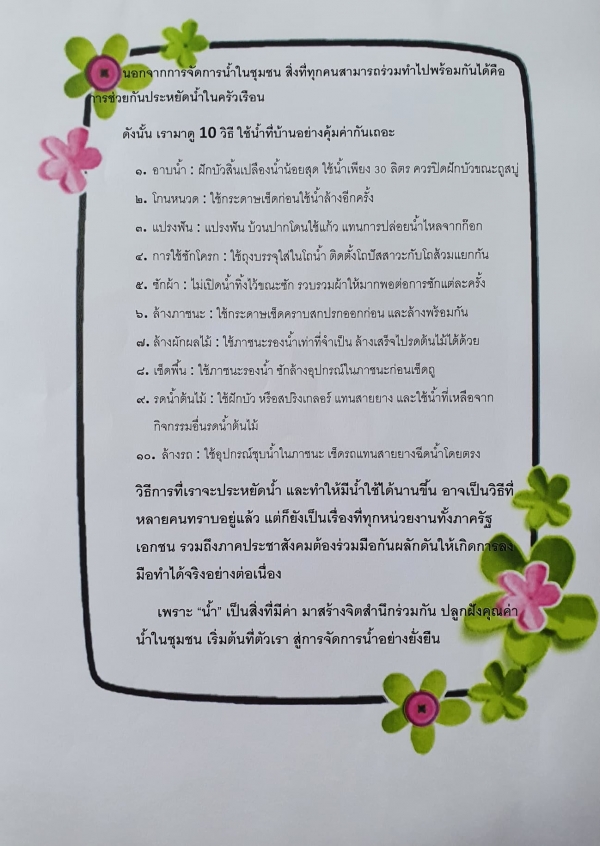 นอกจากการจัดการน้ำในชุมชน สิ่งที่ทุกคนสามารถร่วมทำไปพร้อมกันได้คือ
การช่วยกันประหยัดน้ำในครัวเรือน
ดังนั้น เรามาดู 10 วิธี ใช้น้ำที่บ้านอย่างคุ้มค่ากันเถอะ
๑. อาบน้ำ : ฝักบัวสิ้นเปลืองน้ำน้อยสุด ใช้น้ำเพียง 30 ลิตร ควรปิดฝักบัวขณะถูสบู่
๒. โกนหนวด : ใช้กระดาษเช็ดก่อนใช้น้ำล้างอีกครั้ง
๓. แปรงฟัน : แปรงฟัน บ้วนปากโดนใช้แก้ว แทนการปล่อยน้ำไหลจากก๊อก
๔. การใช้ชักโครก : ใช้ถุงบรรจุใส่ในโถน้ำ ติดตั้งโถปัสสาวะกับโถส้วมแยกกัน
๕. ซักผ้า : ไม่เปิดน้ำทิ้งไว้ขณะซัก รวบรวมผ้าให้มากพอต่อการซักแต่ละครั้ง
๖. ล้างภาชนะ : ใช้กระดาษเช็ดคราบสกปรกออกก่อน และล้างพร้อมกัน
๗. ล้างผักผลไม้ : ใช้ภาชนะรองน้ำเท่าที่จำเป็น ล้างเสร็จไปรดต้นไม้ได้ด้วย
๘. เช็ดพื้น : ใช้ภาชนะรองน้ำ ซักล้างอุปกรณ์ในภาชนะก่อนเช็ดถู
๙. รดน้ำต้นไม้ : ใช้ฝักบัว หรือสปริงเกลอร์ แทนสายยาง และใช้น้ำที่เหลือจาก
กิจกรรมอื่นรดน้ำต้นไม้
๑๐. ล้างรถ : ใช้อุปกรณ์ชุบน้ำในภาชนะ เช็ดรถแทนสายยางฉีดน้ำโดยตรง
วิธีการที่เราจะประหยัดน้ำ และทำให้มีน้ำใช้ได้นานขึ้น อาจเป็นวิธีที่
หลายคนทราบอยู่แล้ว แต่ก็ยังเป็นเรื่องที่ทุกหน่วยงานทั้งภาครัฐ
เอกชน รวมถึงภาคประชาสังคมต้องร่วมมือกันผลักดันให้เกิดการลง
มือทำได้จริงอย่างต่อเนื่อง
เพราะ “น้ำ” เป็นสิ่งที่มีค่า มาสร้างจิตสำนึกร่วมกัน ปลูกฝังคุณค่า
น้ำในชุมชน เริ่มต้นที่ตัวเรา สู่การจัดการน้ำอย่างยั่งยืน